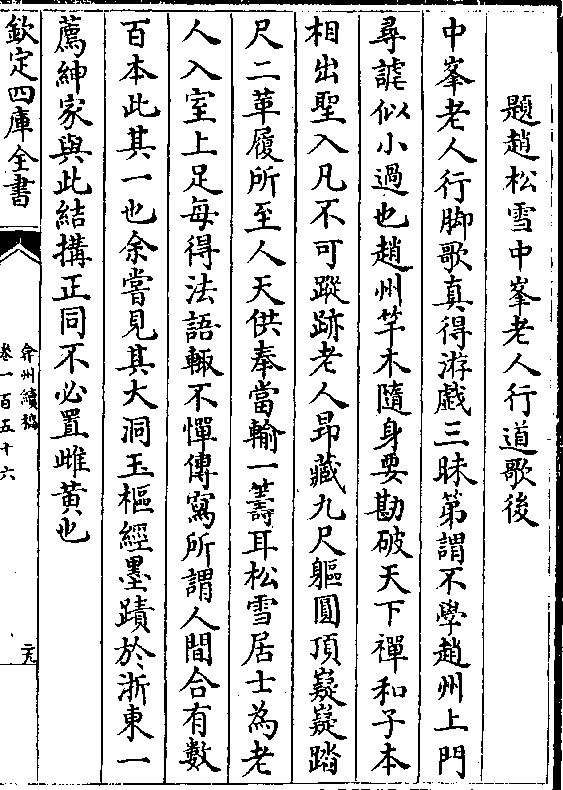 題趙松雪中峯老人行道歌後
中峯老人行脚歌真得游戲三昧第謂不學趙州上門
尋謔似小過也趙州竿木隨身要勘破天下禪和子本
相出聖入凡不可蹤跡老人昂藏九尺軀圓頂嶷嶷踏
尺二革履所至人天供奉當輸一籌耳松雪居士為老
人入室上足每得法語輙不憚傳寫所謂人間合有數
百本此其一也余嘗見其大洞玉樞經墨蹟於浙東一
薦紳家與此結搆正同不必置雌黄也
欽定四庫全書
弇州續稿
卷一百五十六
二九